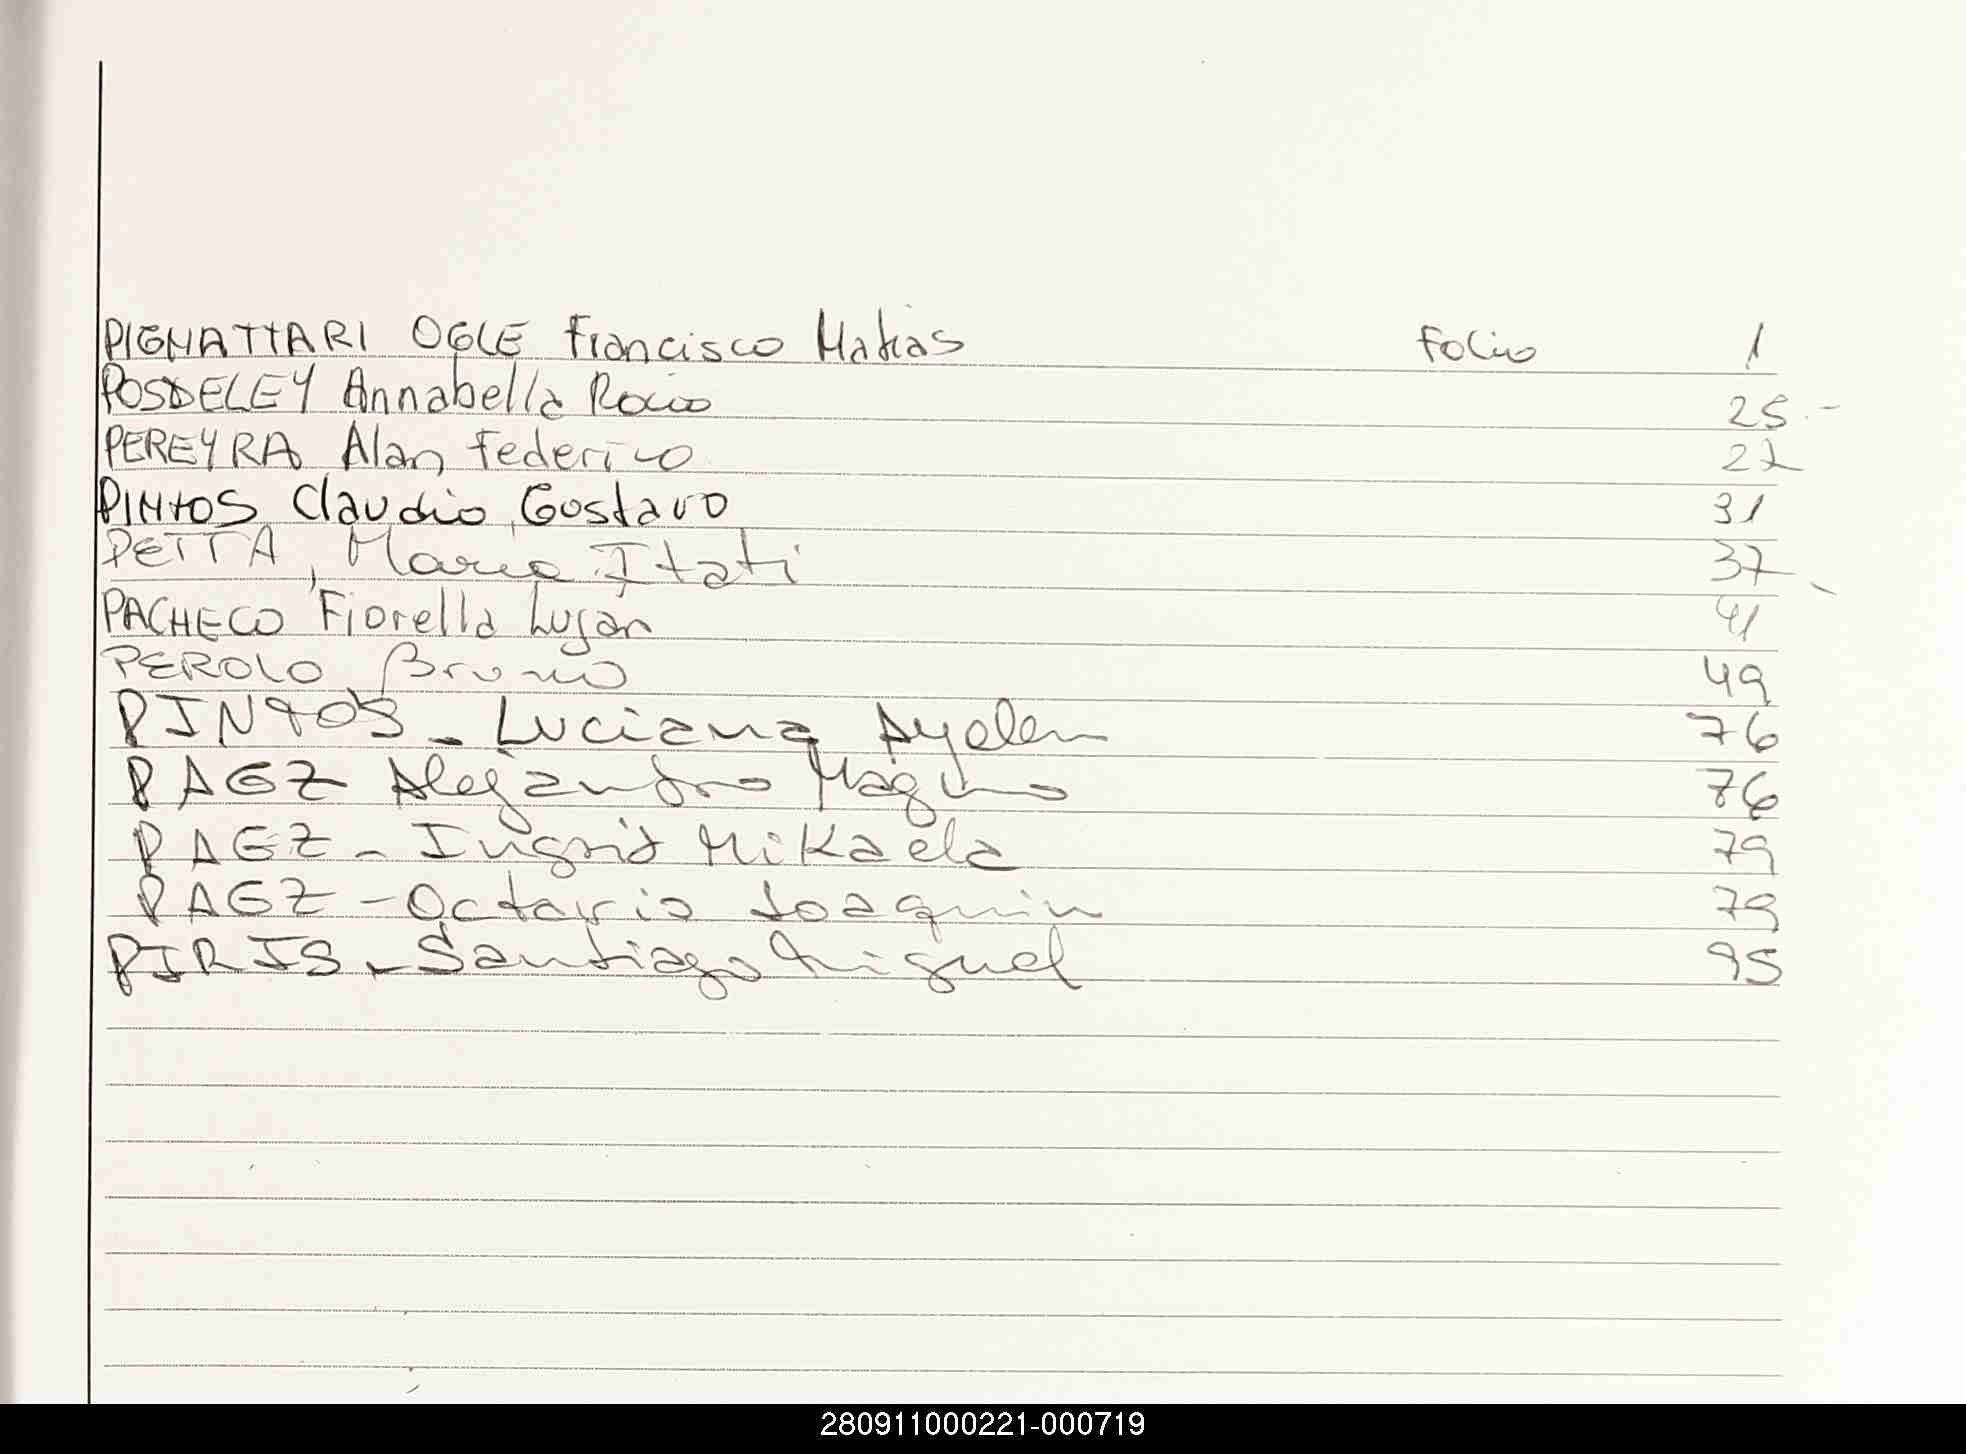 PIGNATTARI OGLE Francisco Matias Folio 1
POSDELEY Annabella Rocio 25
PEREYRA Alan Federico 27
PINTOS Claudio Gustavo 31
PETTA, Maria Itati 37
PACHECO Fiorella Lujan 41
PEROLO Bruno 49
PINTOS - Luciana Ayelen 76
PAEZ Alejandro Magno 76
PAEZ - Ingrid Mikaela 79
PAEZ - Octavio Joaquin 79
PIRIS - Santiago Miguel 95
280911000221-000719